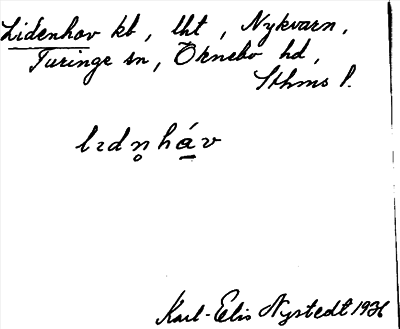 Lidenhov kb, lht, Nykvarn,
Turinge sn, Örnebo hd,
Sthms l.
lıdn̥háv
Karl-Elis Nystedt 1936